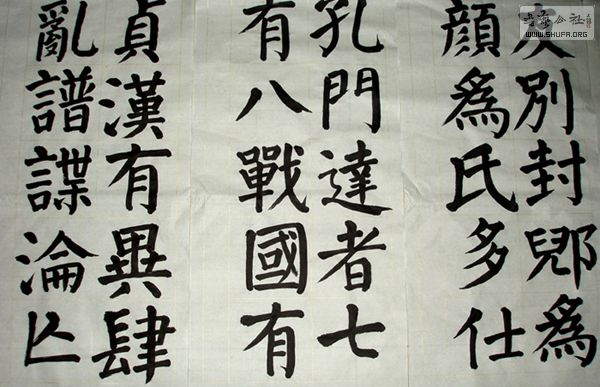 友別封郳爲
顏爲氏多仕
孔門達者七
有八戰國有
貞漢有異肆
亂譜諜淪亾
WWW.SHUFA.ORG